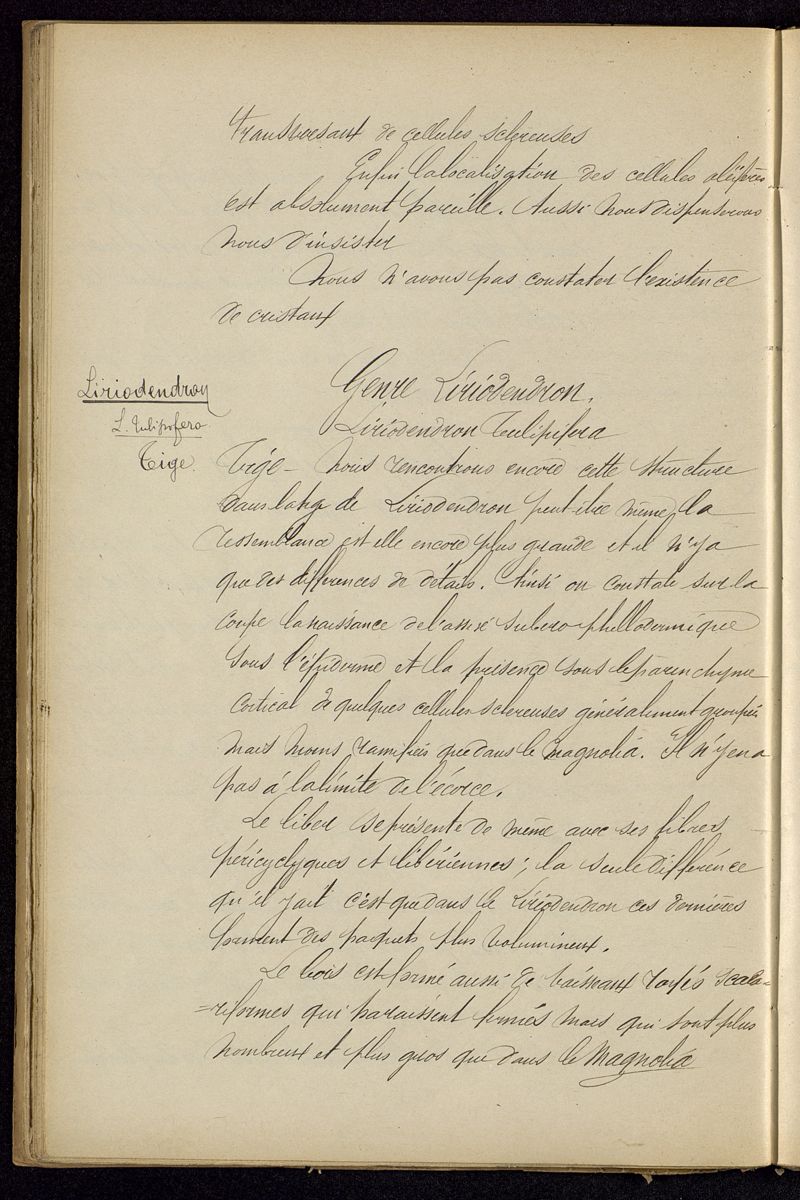 transversaux de cellules scléreuses
Enfin la localisation des cellules oléifères
est absolument pareille. Aussi nous dispenserons
nous d'insister
Nous n'avons pas constater l'existence
de cristaux
Liriodendron
L. tulipifera
Tige.
Genre Liriodendron.
Liriodendron Tulipifera
Tige - Nous rencontrons encore cette structure
dans la tige de Liriodendron peut-être même la
ressemblance est elle encore plus grande et il n'y a
que des différences de détails. Ainsi on constate sur la
coupe la naissance de l'assise subero-phellodermique
sous l'épiderme et la présence sous le parenchyme
cortical de quelques cellules scléreuses généralement groupées
mais moins ramifiées que dans le magnolia. Il n'y en a
pas à la limite de l'écorce.
Le liber se présente de même avec ses fibres
péricycliques et libériennes ; la seule différence
qu'il y ait c'est que dans le Liriodendron ces dernières
forment des paquets plus volumineux.
Le bois est formé aussi de vaisseaux rayés scala=
=riformes qui paraissent fermés mais qui sont plus
nombreux et plus gros que dans le Magnolia